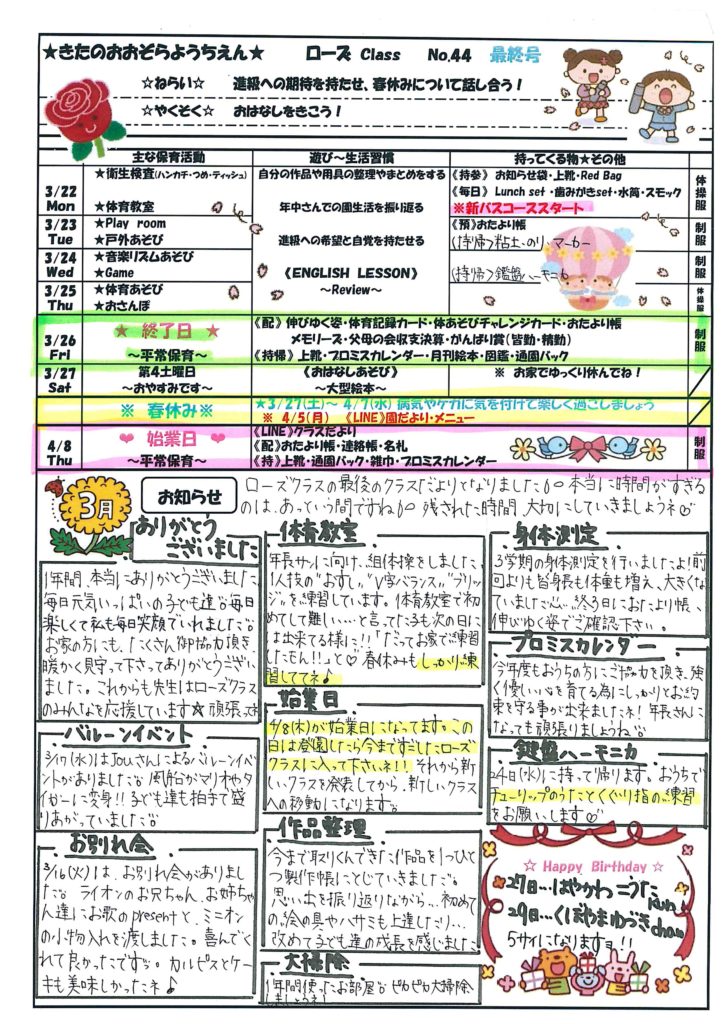 ★きたのおおぞらようちえん★ ローズ Class No.44 最終号
☆ねらい☆ 進級への期待を持たせ、春休みについて話し合う！
☆やくそく☆ おはなしをきこう！
主な保育活動 遊び～生活習慣 持ってくる物★その他
3/22 Mon
★衛生検査(ハンカチ・つめ・ティッシュ)
★体育教室
自分の作品や用具の整理やまとめをする
年中さんでの園生活を振り返る
《持参》 お知らせ袋・上靴・Red Bag
《毎日》 Lunch set・歯みがきset・水筒・スモック
※新バスコーススタート
体操服
3/23 Tue
★Play room
★戸外あそび
進級への希望と自覚を持たせる
《預》おたより帳
(持帰)粘土・のり・マーカー
制服
3/24 Wed
★音楽リズムあそび
★Game
《ENGLISH LESSON》
～Review～
(持帰)鍵盤ハーモニカ
制服
3/25 Thu
★体育あそび
★おさんぽ
体操服
3/26 Fri
★ 終了日 ★
～平常保育～
《配》伸びゆく姿・体育記録カード・体あそびチャレンジカード・おたより帳
メモリーズ・父母の会収支決算・がんばり賞(皆勤・精勤)
《持帰》上靴・プロミスカレンダー・月刊絵本・図鑑・通園バック
制服
3/27 Sat
第4土曜日
～おやすみです～
《おはなしあそび》
～大型絵本～
※ お家でゆっくり休んでね！
※ 春休み※
★3/27(土)～ 4/7(水) 病気やケガに気を付けて楽しく過ごしましょう
※ 4/5(月) 《LINE》園だより・メニュー
4/8 Thu
❤ 始業日 ❤
～平常保育～
《LINE》クラスだより
《配》おたより帳・連絡帳・名札
《持》上靴・通園バック・雑巾・プロミスカレンダー
制服
3月
お知らせ
ローズクラスの最後のクラスだよりとなりました!。本当に時間がすぎる
のは、あっという間ですね!。残された時間、大切にしていきましょうネ♡
ありがとう
ございました
1年間、本当にありがとうございました。
毎日元気いっぱいの子ども達。毎日
楽しくて私も毎日笑顔でいれました。
お家の方にも、たくさん御協力頂き、
暖かく見守って下さってありがとうござい
ました。これからも先生はローズクラス
のみんなを応援しています☆頑張ってネ
バルーンイベント
3/17(水)はJouさんによるバルーンイベ
ントがありました。風船がマリオやタ
イガーに変身!!子ども達も拍手で盛
りあがっていました。
お別れ会
3/16(火)は、お別れ会がありまし
た。ライオンのお兄ちゃん、お姉ちゃ
ん達にお歌のpresentと、ミニオン
の小物入れを渡しました。喜んでく
れて良かったですぅ。カルピスとケー
キも美味しかったネ♪
体育教室
年長サンに向け、組体操をしました。
1人技の"おすし""V字バランス""ブリッ
ジ"を練習しています。体育教室で初
めてして難しい…と言ってた子も次の日に
は出来てる様に!!「だってお家で練習
したもん!!」と♡ 春休みもしっかり練
習しててネ♪
始業日
4/8(木)が始業日になってます。この
日は登園したら今まですごしたローズ
クラスに入って下さいネ!!それから新
しいクラスを発表してから、新しいクラス
への移動になります。
作品整理
今まで取りくんできた作品を1つひと
つ製作帳にとじていきました。
思い出を振り返りながら…初めて
の絵の具やハサミも上達したり…
改めて子ども達の成長を感じました
大掃除
1年間使ったお部屋。ピカピカ大掃除
しましょうネ!
身体測定
3学期の身体測定を行いましたよ!前
回よりも皆身長も体重も増え、大きくな
ていました。終了日におたより帳、
伸びゆく姿でご確認下さい。
プロミスカレンダー
今年度もおうちの方にご協力を頂き、強
く優しい心を育てる為にしっかりとお約
束を守る事が出来ましたネ!年長さんに
なっても頑張りましょうね
鍵盤ハーモニカ
24日(水)に持って帰ります。おうちで
チューリップのうたとくぐり指の練習
をお願いします♡
☆ Happy Birthday ☆
27日…はやかわ こうた kun
29日…くぼやま ゆづき chan
5サイになりますヨ!!